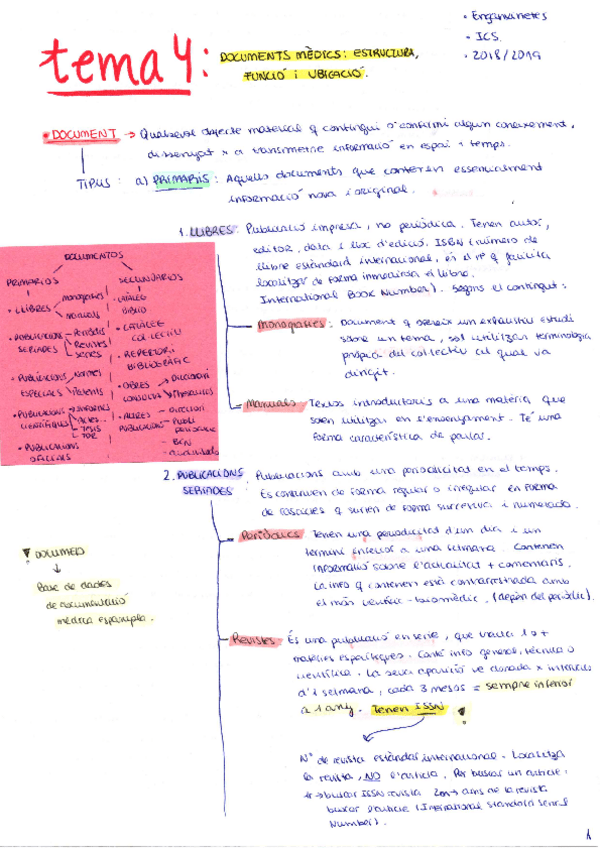 • Engamanetes
• ICS
• 2018/2019
tema 4:
DOCUMENTS MÈDICS: ESTRUCTURA,
FUNCIÓ i UBICACIÓ.
• DOCUMENT → Qualsevol objecte material q contingui o confirmi algun coneixement,
dissenyat x a transmetre informació en espai i temps.
TIPUS: a) PRIMARIS: Aquells documents que contenen essencialment
informació nova i original.
1. LLIBRES: Publicació impresa, no periòdica. Tenen autor,
editor, data i lloc d'edició. ISBN (número de
llibre estàndard internacional, és el nº q facilita
localitzar de forma immediata el llibre.
International Book Number). Segons el contingut:
Monografies: Document q ofereix un exhaustiu estudi
sobre un tema, sol utilitzar terminologia
pròpia del col·lectiu al qual va
dirigit.
Manuals: Textos introductoris a una matèria que
solen utilitzar en l'ensenyament. Té una
forma característica de pautar.
DOCUMENTOS
PRIMARIOS
SECUNDARIOS
• LLIBRES
monografies
manuals
• PUBLICACIONS
SERIADES
Periòdics
Revistes
series
• PUBLICACIONS
ESPECIALS
normes
Patents
• PUBLICACIONS
CIENTÍFIQUES
informes
actes
TESIS
TDR
• PUBLICACIONS
OFICIALS
• CATÀLEG
BIBLIO
• CATÀLEG
COL·LECTIU
• REPERTORI
BIBLIOGRÀFIC
• OBRES
CONSULTA
Diccionari
Thesaurus
• ALTRES
PUBLICACIONS
Directori
Publi
BCN
2. PUBLICACIONS
SERIADES:
Publicacions amb una periodicitat en el temps.
Es construeixen de forma regular o irregular en forma
de fascicles q surten de forma successiva i numerada.
Periòdics
Tenen una periodicitat d'un dia i un
termini inferior a una setmana. Contenen
informació sobre l'actualitat + comentaris.
La info q contenen està contrarrestada amb
el món científic-biomèdic. (depèn del periòdic).
DOCUMED
↓
Base de dades
de documentació
mèdica espanyola.
Revistes
És una publicació en sèrie, que tracta 1 o +
matèries específiques. Conté info general, tècnica o
científica. La seva aparició ve donada x intervals
d'1 setmana, cada 3 mesos = sempre inferior
a 1 any. Tenen ISSN
Nº de revista estàndar internacional. Localitza
la revista, NO l'article. Per buscar un article:
1r → buscar ISSN revista 2on → dins de la revista
buscar l'article (International Standard Serial
Number).
1